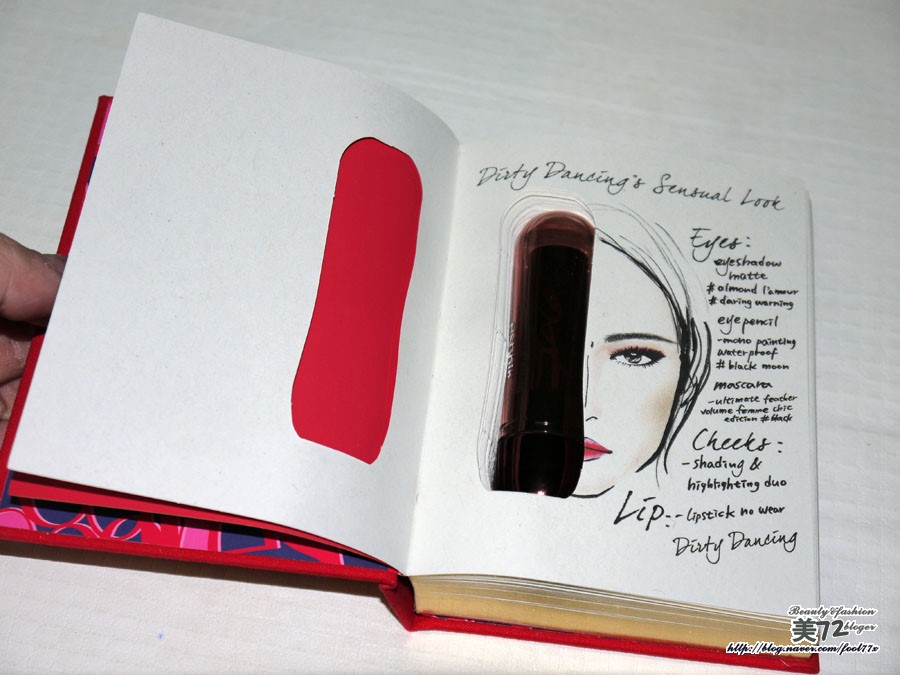 Dirty Dancing's Sensual Look
Eyes:
eyeshadow
matte
# almond l'amour
# daring warning
eye pencil
-mono painting
waterproof
# black moon
mascara
-ultimate feather
volume femme chic
edition # black
Cheeks:
-shading &
highlighting duo
Lip:-lipstick no wear
Dirty Dancing
Beauty&fashion
美72bloger
http://blog.naver.com/fool77x